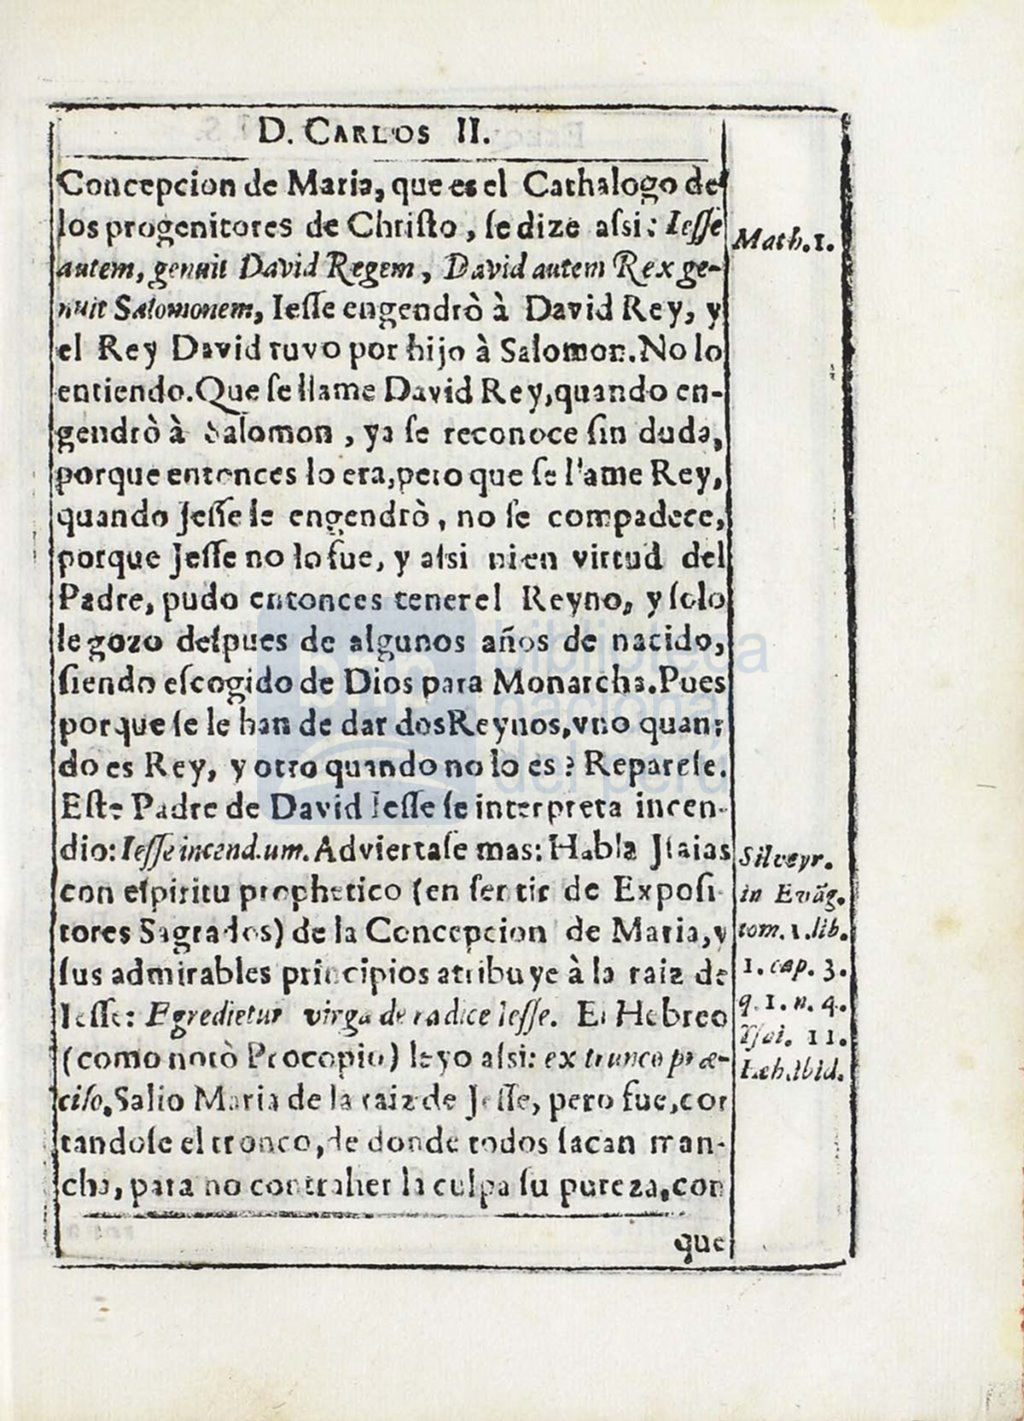 D. CARLOS II.
Concepcion de Maria, que es el Cathalogo de
los progenitores de Chriſto, ſe dize aſsi: Ieſſe
autem, genuit David Regem, David autem Rex ge-
nuit Salomonem, Ieſſe engendrò à David Rey, y
el Rey David tuvo por hijo à Salomon. No lo
entiendo. Que ſe llame David Rey, quando en-
gendrò à Salomon, ya ſe reconoce ſin duda,
porque entonces lo era, pero que ſe llame Rey,
quando Jeſſe le engendrò, no ſe compadece,
porque Jeſſe no lo fue, y aſsi ni en virtud del
Padre, pudo entonces tener el Reyno, y ſolo
le gozo deſpues de algunos años de nacido,
ſiendo eſcogido de Dios para Monarcha. Pues
porque ſe le han de dar dos Reynos, vno quan-
do es Rey, y otro quando no lo es? Repareſe.
Eſte Padre de David Ieſſe ſe interpreta incen-
dio: Ieſſe incendium. Adviertaſe mas: Habla Jſaias
con eſpiritu prophetico (en ſentir de Expoſi-
tores Sagrados) de la Concepcion de Maria, y
ſus admirables principios atribuye à la raiz de
Ieſſe: Egredietur virga de radice Ieſſe. El Hebreo
(como notò Procopio) leyo aſsi: ex trunco præ-
ciſo, Salio Maria de la raiz de Jeſſe, pero fue, cor
tandoſe el tronco, de donde todos ſacan man-
cha, para no contraher la culpa ſu pureza, con
que
Math. 1.
Silveyr.
in Evãg.
tom. 1. lib.
1. cap. 3.
q. 1. n. 4.
Yſai. 11.
ibid.
biblioteca
nacional
del perú